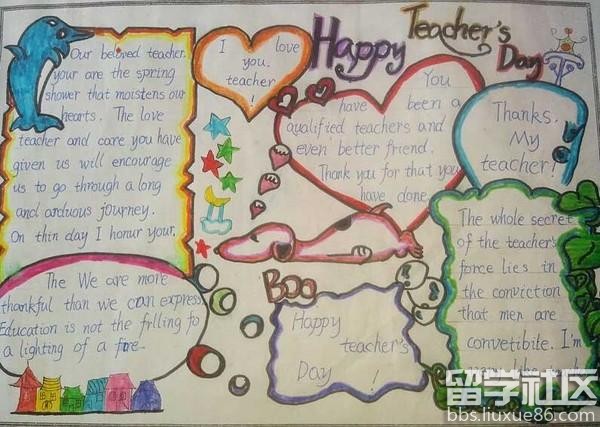 Happy Teacher's Day
Our beloved teacher,
your are the spring
shower that moistens our
hearts. The love
teacher and care you have
given us will encourage
us to go through a long
and arduous journey.
On thin day I honur your.
I love
you.
teacher
!
You
have been a
qyalified teachers and
even better friend.
Thank you for that you
have done
Thanks.
My
teacher!
The We are more
thankful than we can express
Education is not the frlling fo
a lighting of a fire.
Boo
Happy
teacher's
Day !
The whole secret
of the teacher's
force lies in
the conviction
that men are
convettibite. I'm
留学社区
bbs.liuxue86.com